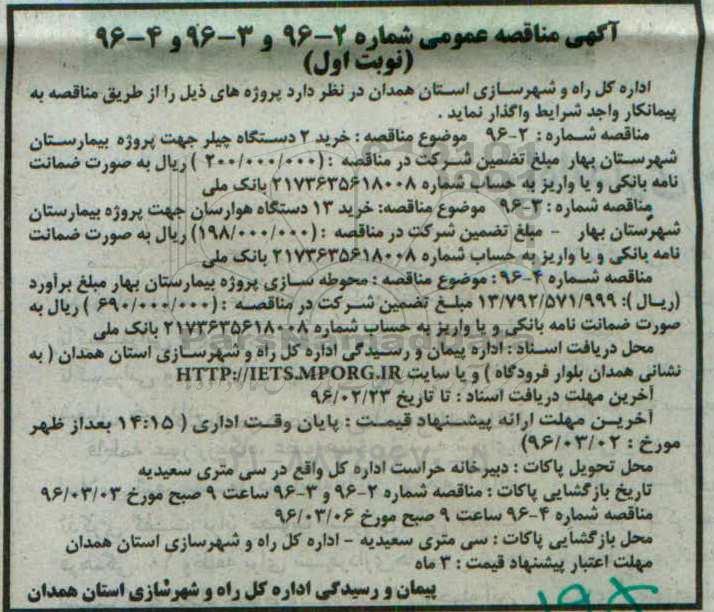 آگهی مناقصه عمومی شماره ۲-۹۶ و ۳-۹۶ و ۴-۹۶
(نوبت اول)
اداره کل راه و شهرسازی استان همدان در نظر دارد پروژه های ذیل را از طریق مناقصه به
پیمانکار واجد شرایط واگذار نماید .
مناقصه شماره : ۲-۹۶ موضوع مناقصه : خرید ۲ دستگاه چیلر جهت پروژه بیمارستان
شهرستان بهار مبلغ تضمین شرکت در مناقصه : (۲۰۰/۰۰۰/۰۰۰ ) ریال به صورت ضمانت
نامه بانکی و یا واریز به حساب شماره ۲۱۷۳۶۳۵۶۱۸۰۰۸ بانک ملی
مناقصه شماره : ۳-۹۶ موضوع مناقصه: خرید ۱۳ دستگاه هوارسان جهت پروژه بیمارستان
شهرستان بهار - مبلغ تضمین شرکت در مناقصه : (۱۹۸/۰۰۰/۰۰۰) ریال به صورت ضمانت
نامه بانکی و یا واریز به حساب شماره ۲۱۷۳۶۳۵۶۱۸۰۰۸ بانک ملی
مناقصه شماره ۴-۹۶ : موضوع مناقصه : محوطه سازی پروژه بیمارستان بهار مبلغ برآورد
(ریال ): ۱۳/۷۹۲/۵۷۱/۹۹۹ مبلغ تضمین شرکت در مناقصه : (۶۹۰/۰۰۰/۰۰۰ ) ریال به
صورت ضمانت نامه بانکی و یا واریز به حساب شماره ۲۱۷۳۶۳۵۶۱۸۰۰۸ بانک ملی
محل دریافت اسناد : اداره پیمان و رسیدگی اداره کل راه و شهرسازی استان همدان ( به
نشانی همدان بلوار فرودگاه ) و یا سایت HTTP://IETS.MPORG.IR
آخرین مهلت دریافت اسناد : تا تاریخ ۹۶/۰۲/۲۳
آخرین مهلت ارائه پیشنهاد قیمت : پایان وقت اداری ( ۱۴:۱۵ بعداز ظهر
مورخ : ۹۶/۰۳/۰۲)
محل تحویل پاکات : دبیرخانه حراست اداره کل واقع در سی متری سعیدیه
تاریخ بازگشایی پاکات : مناقصه شماره ۲-۹۶ و ۳-۹۶ ساعت ۹ صبح مورخ ۹۶/۰۳/۰۳
مناقصه شماره ۴-۹۶ ساعت ۹ صبح مورخ ۹۶/۰۳/۰۶
محل بازگشایی پاکات : سی متری سعیدیه - اداره کل راه و شهرسازی استان همدان
مهلت اعتبار پیشنهاد قیمت : ۳ ماه
پیمان و رسیدگی اداره کل راه و شهرسازی استان همدان